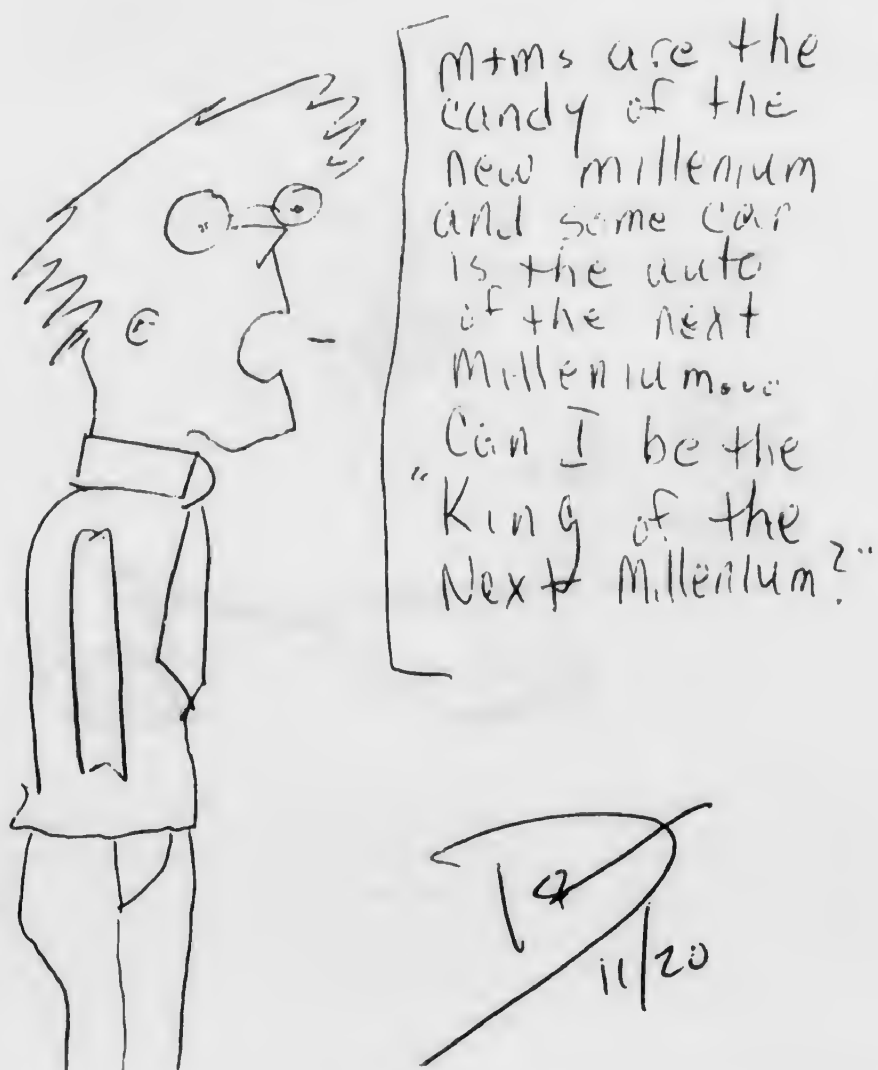 m+ms are the
candy of the
new millenium
and some car
is the auto
of the next
Millenium...
Can I be the
"King of the
Next Millenium?"
11/20